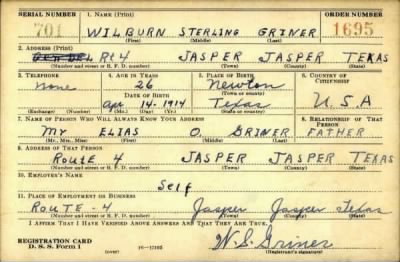 SERIAL NUMBER 1. NAME (Print) ORDER NUMBER
701 WILBURN STERLING GRINER 1695
(First) (Middle) (Last)
2. ADDRESS (Print)
Rt 4 JASPER JASPER TEXAS
(Number and street or R. F. D. number) (Town) (County) (State)
3. TELEPHONE 4. AGE IN YEARS 5. PLACE OF BIRTH 6. COUNTRY OF CITIZENSHIP
None 26 Newton
DATE OF BIRTH (Town or county)
Apr 14-1914 Texas U.S.A
(Exchange) (Number) (Mo.) (Day) (Yr.) (State or country)
7. NAME OF PERSON WHO WILL ALWAYS KNOW YOUR ADDRESS 8. RELATIONSHIP OF THAT PERSON
MR ELIAS O. GRINER FATHER
(Mr., Mrs., Miss) (First) (Middle) (Last)
9. ADDRESS OF THAT PERSON
ROUTE 4 JASPER JASPER TEXAS
(Number and street or R. F. D. number) (Town) (County) (State)
10. EMPLOYER'S NAME
Self
11. PLACE OF EMPLOYMENT OR BUSINESS
ROUTE-4 Jasper Jasper Texas
(Number and street or R. F. D. number) (Town) (County) (State)
I AFFIRM THAT I HAVE VERIFIED ABOVE ANSWERS AND THAT THEY ARE TRUE.
REGISTRATION CARD
D. S. S. Form 1 (over) 16-17105 W.S. Griner
(Registrant's signature)